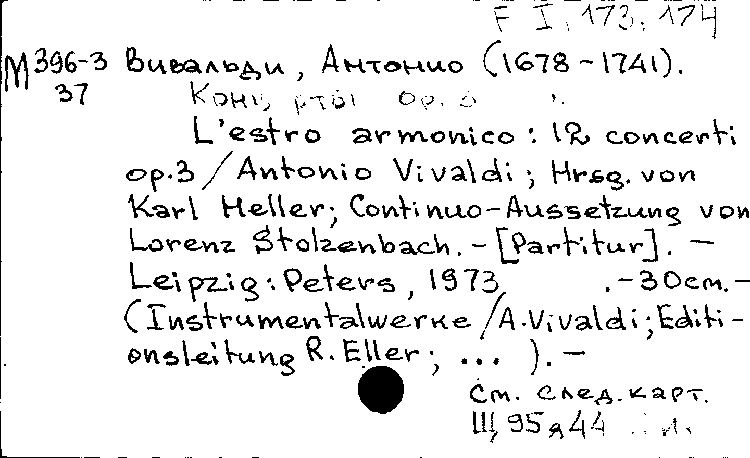 F I, 173, 174
М 396-3 Вивальди, Антонио (1678-1741).
37
ор. 3
L'estro armonico : 12 concerti
op.3 / Antonio Vivaldi ; Hrsg. von
Karl Heller; Continuo-Aussetzung von
Lorenz Stolzenbach. - [Partitur]. -
Leipzig : Peters, 1973 .-30см.-
(Instrumentalwerke / A.Vivaldi ; Editi-
onsleitung R. Eller ; ... ). -
См. след. карт.
Щ 95я44